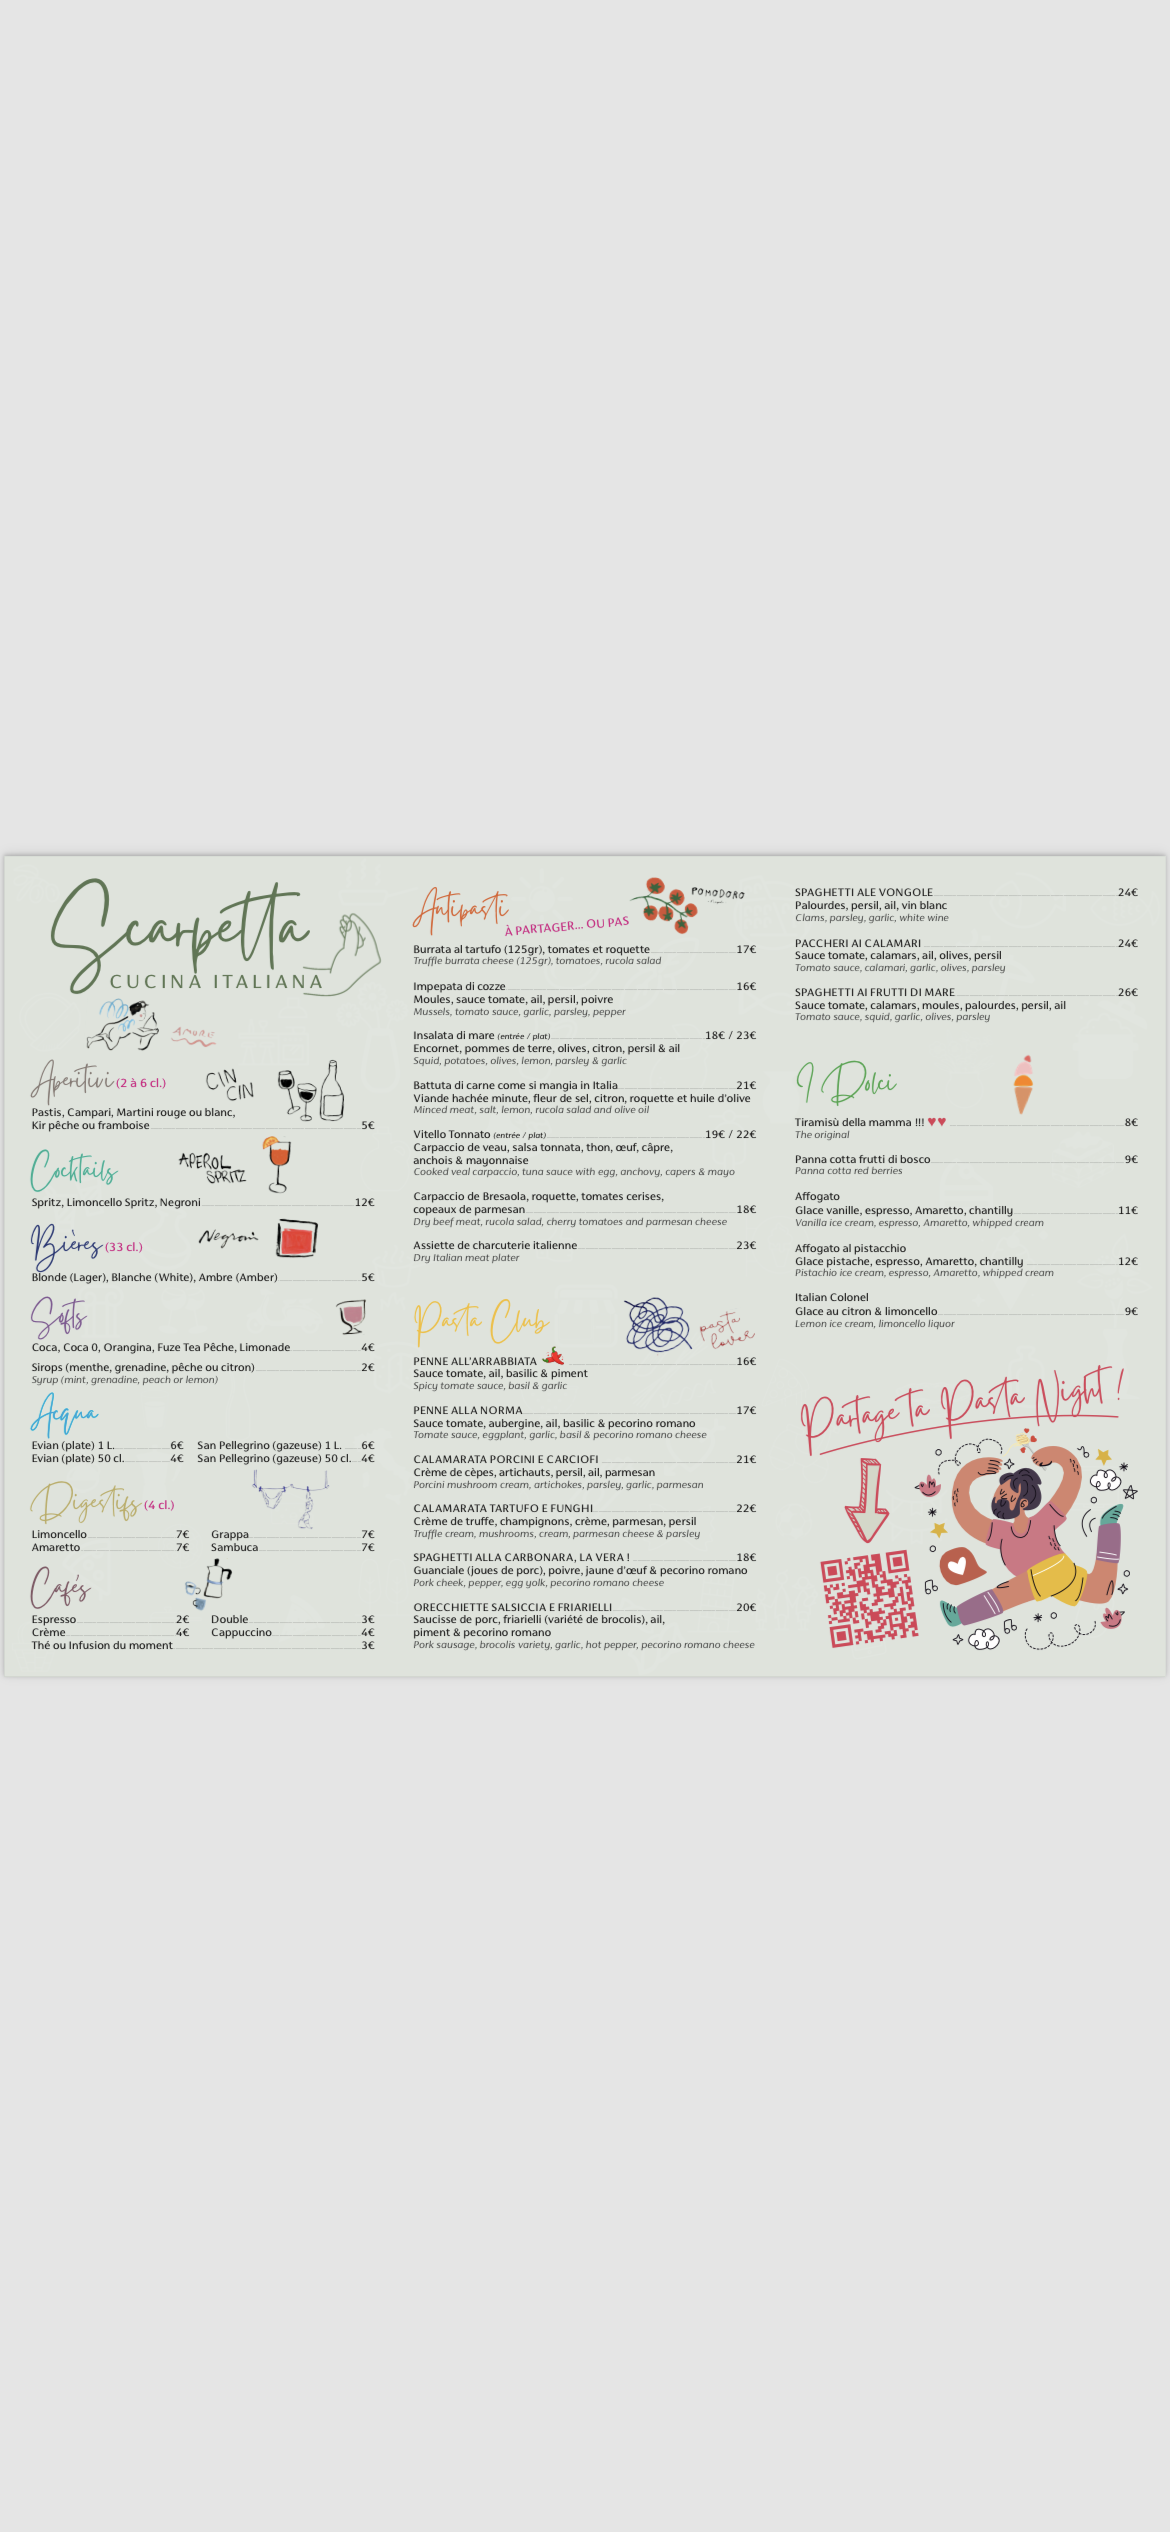 Scarpetta
CUCINA ITALIANA
AMORE
Aperitivi (2 à 6 cl.)
CIN
CIN
Pastis, Campari, Martini rouge ou blanc,
Kir pêche ou framboise 5€
Cocktails
APEROL
SPRITZ
Spritz, Limoncello Spritz, Negroni 12€
Bières (33 cl.)
Negroni
Blonde (Lager), Blanche (White), Ambre (Amber) 5€
Softs
Coca, Coca 0, Orangina, Fuze Tea Pêche, Limonade 4€
Sirops (menthe, grenadine, pêche ou citron) 2€
Syrup (mint, grenadine, peach or lemon)
Acqua
Evian (plate) 1 L. 6€ San Pellegrino (gazeuse) 1 L. 6€
Evian (plate) 50 cl. 4€ San Pellegrino (gazeuse) 50 cl. 4€
Digestifs (4 cl.)
Limoncello 7€ Grappa 7€
Amaretto 7€ Sambuca 7€
Cafés
Espresso 2€ Double 3€
Crème 4€ Cappuccino 4€
Thé ou Infusion du moment 3€
Antipasti
À PARTAGER... OU PAS
POMODORO
Burrata al tartufo (125gr), tomates et roquette 17€
Truffle burrata cheese (125gr), tomatoes, rucola salad
Impepata di cozze 16€
Moules, sauce tomate, ail, persil, poivre
Mussels, tomato sauce, garlic, parsley, pepper
Insalata di mare (entrée / plat) 18€ / 23€
Encornet, pommes de terre, olives, citron, persil & ail
Squid, potatoes, olives, lemon, parsley & garlic
Battuta di carne come si mangia in Italia 21€
Viande hachée minute, fleur de sel, citron, roquette et huile d'olive
Minced meat, salt, lemon, rucola salad and olive oil
Vitello Tonnato (entrée / plat) 19€ / 22€
Carpaccio de veau, salsa tonnata, thon, œuf, câpre,
anchois & mayonnaise
Cooked veal carpaccio, tuna sauce with egg, anchovy, capers & mayo
Carpaccio de Bresaola, roquette, tomates cerises,
copeaux de parmesan 18€
Dry beef meat, rucola salad, cherry tomatoes and parmesan cheese
Assiette de charcuterie italienne 23€
Dry Italian meat plater
Pasta Club
pasta
lover
PENNE ALL'ARRABBIATA 16€
Sauce tomate, ail, basilic & piment
Spicy tomate sauce, basil & garlic
PENNE ALLA NORMA 17€
Sauce tomate, aubergine, ail, basilic & pecorino romano
Tomate sauce, eggplant, garlic, basil & pecorino romano cheese
CALAMARATA PORCINI E CARCIOFI 21€
Crème de cèpes, artichauts, persil, ail, parmesan
Porcini mushroom cream, artichokes, parsley, garlic, parmesan
CALAMARATA TARTUFO E FUNGHI 22€
Crème de truffe, champignons, crème, parmesan, persil
Truffle cream, mushrooms, cream, parmesan cheese & parsley
SPAGHETTI ALLA CARBONARA, LA VERA ! 18€
Guanciale (joues de porc), poivre, jaune d'œuf & pecorino romano
Pork cheek, pepper, egg yolk, pecorino romano cheese
ORECCHIETTE SALSICCIA E FRIARIELLI 20€
Saucisse de porc, friarielli (variété de brocolis), ail,
piment & pecorino romano
Pork sausage, brocolis variety, garlic, hot pepper, pecorino romano cheese
SPAGHETTI ALE VONGOLE 24€
Palourdes, persil, ail, vin blanc
Clams, parsley, garlic, white wine
PACCHERI AI CALAMARI 24€
Sauce tomate, calamars, ail, olives, persil
Tomato sauce, calamari, garlic, olives, parsley
SPAGHETTI AI FRUTTI DI MARE 26€
Sauce tomate, calamars, moules, palourdes, persil, ail
Tomato sauce, squid, garlic, olives, parsley
I Dolci
Tiramisù della mamma !!! ♥♥ 8€
The original
Panna cotta frutti di bosco 9€
Panna cotta red berries
Affogato
Glace vanille, espresso, Amaretto, chantilly 11€
Vanilla ice cream, espresso, Amaretto, whipped cream
Affogato al pistacchio
Glace pistache, espresso, Amaretto, chantilly 12€
Pistachio ice cream, espresso, Amaretto, whipped cream
Italian Colonel
Glace au citron & limoncello 9€
Lemon ice cream, limoncello liquor
Partage ta Pasta Night !